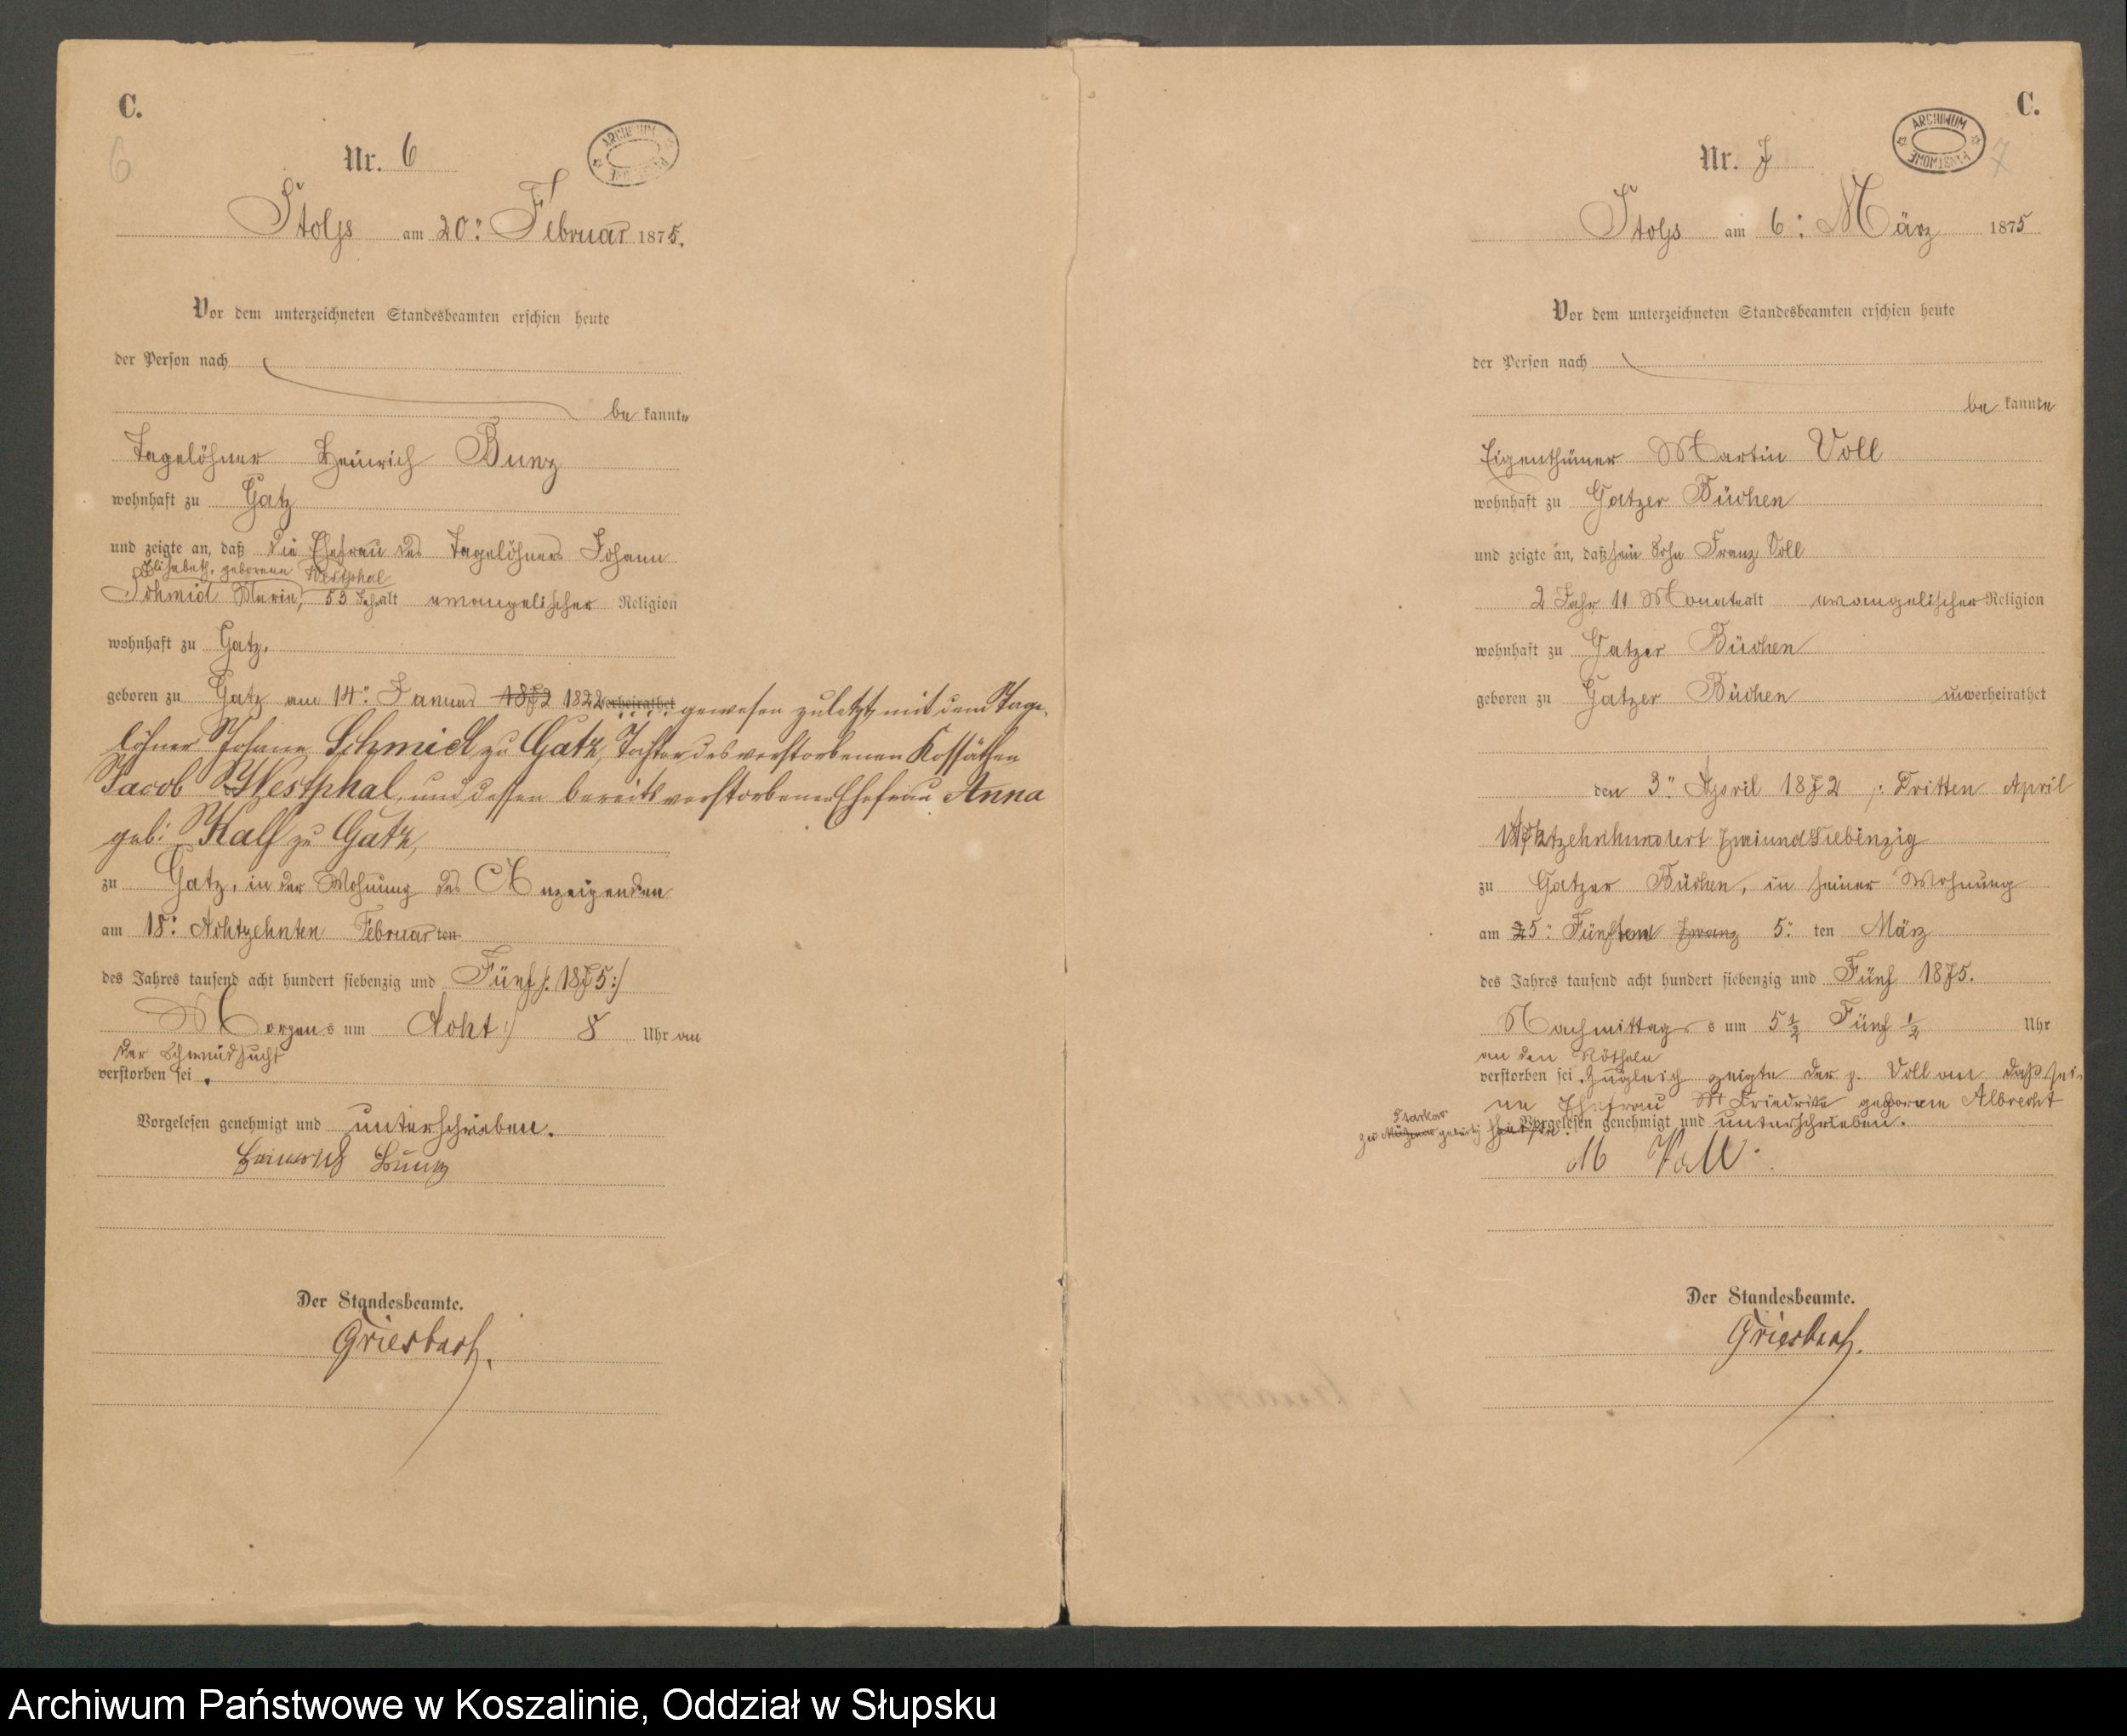 C.
6
Nr. 6
ARCHIWUM
Stolp am 20: Februar 1875.
Vor dem unterzeichneten Standesbeamten erschien heute
der Person nach
be kannte
Tagelöhner Heinrich Bunz
wohnhaft zu Gatz
und zeigte an, daß die Ehefrau des Tagelöhners Johann
Elisabeth, geborene Westphal
Schmid Marie, 53 Jahr alt evangelischer Religion
wohnhaft zu Gatz.
geboren zu Gatz am 14: Januar 1872 1822 verheirathet gewesen zuletzt mit dem Tage-
löhner Johann Schmidt zu Gatz, Tochter des verstorbenen Kossäthen
Jacob Westphal, und dessen bereits verstorbene Ehefrau Anna
geb: Kalf zu Gatz,
zu Gatz, in der Wohnung des Anzeigenden
am 18: Achtzehnten Februar ten
des Jahres tausend acht hundert siebenzig und Fünf /: 1875 :/
Morgens um Acht :/ 8 Uhr an
der Schwindsucht
verstorben sei.
Vorgelesen genehmigt und unterschrieben.
Heinrich Bunz
Der Standesbeamte.
Griesbach.
C.
7
Nr. 7
ARCHIWUM PAŃSTWOWE
Stolp am 6: März 1875
Vor dem unterzeichneten Standesbeamten erschien heute
der Person nach
be kannte
Eigenthümer Martin Voll
wohnhaft zu Gatzer Büchen
und zeigte an, daß sein Sohn Franz Voll
2 Jahr 11 Monate alt evangelischer Religion
wohnhaft zu Gatzer Büchen
geboren zu Gatzer Büchen unverheirathet
den 3: April 1872 /: Dritten April
Achtzehnhundert zweiundsiebenzig
zu Gatzer Büchen, in seiner Wohnung
am 5: Fünften zwanz 5: ten März
des Jahres tausend acht hundert siebenzig und Fünf 1875.
Nachmittags um 5 ½ Fünf ½ Uhr
an den Rötheln
verstorben sei. Zugleich zeigte der p. Voll an daß sei-
ne Ehefrau Friedrike geborene Albrecht
zu gebürtig
Vorgelesen genehmigt und unterschrieben.
M Voll.
Der Standesbeamte.
Griesbach.
Archiwum Państwowe w Koszalinie, Oddział w Słupsku